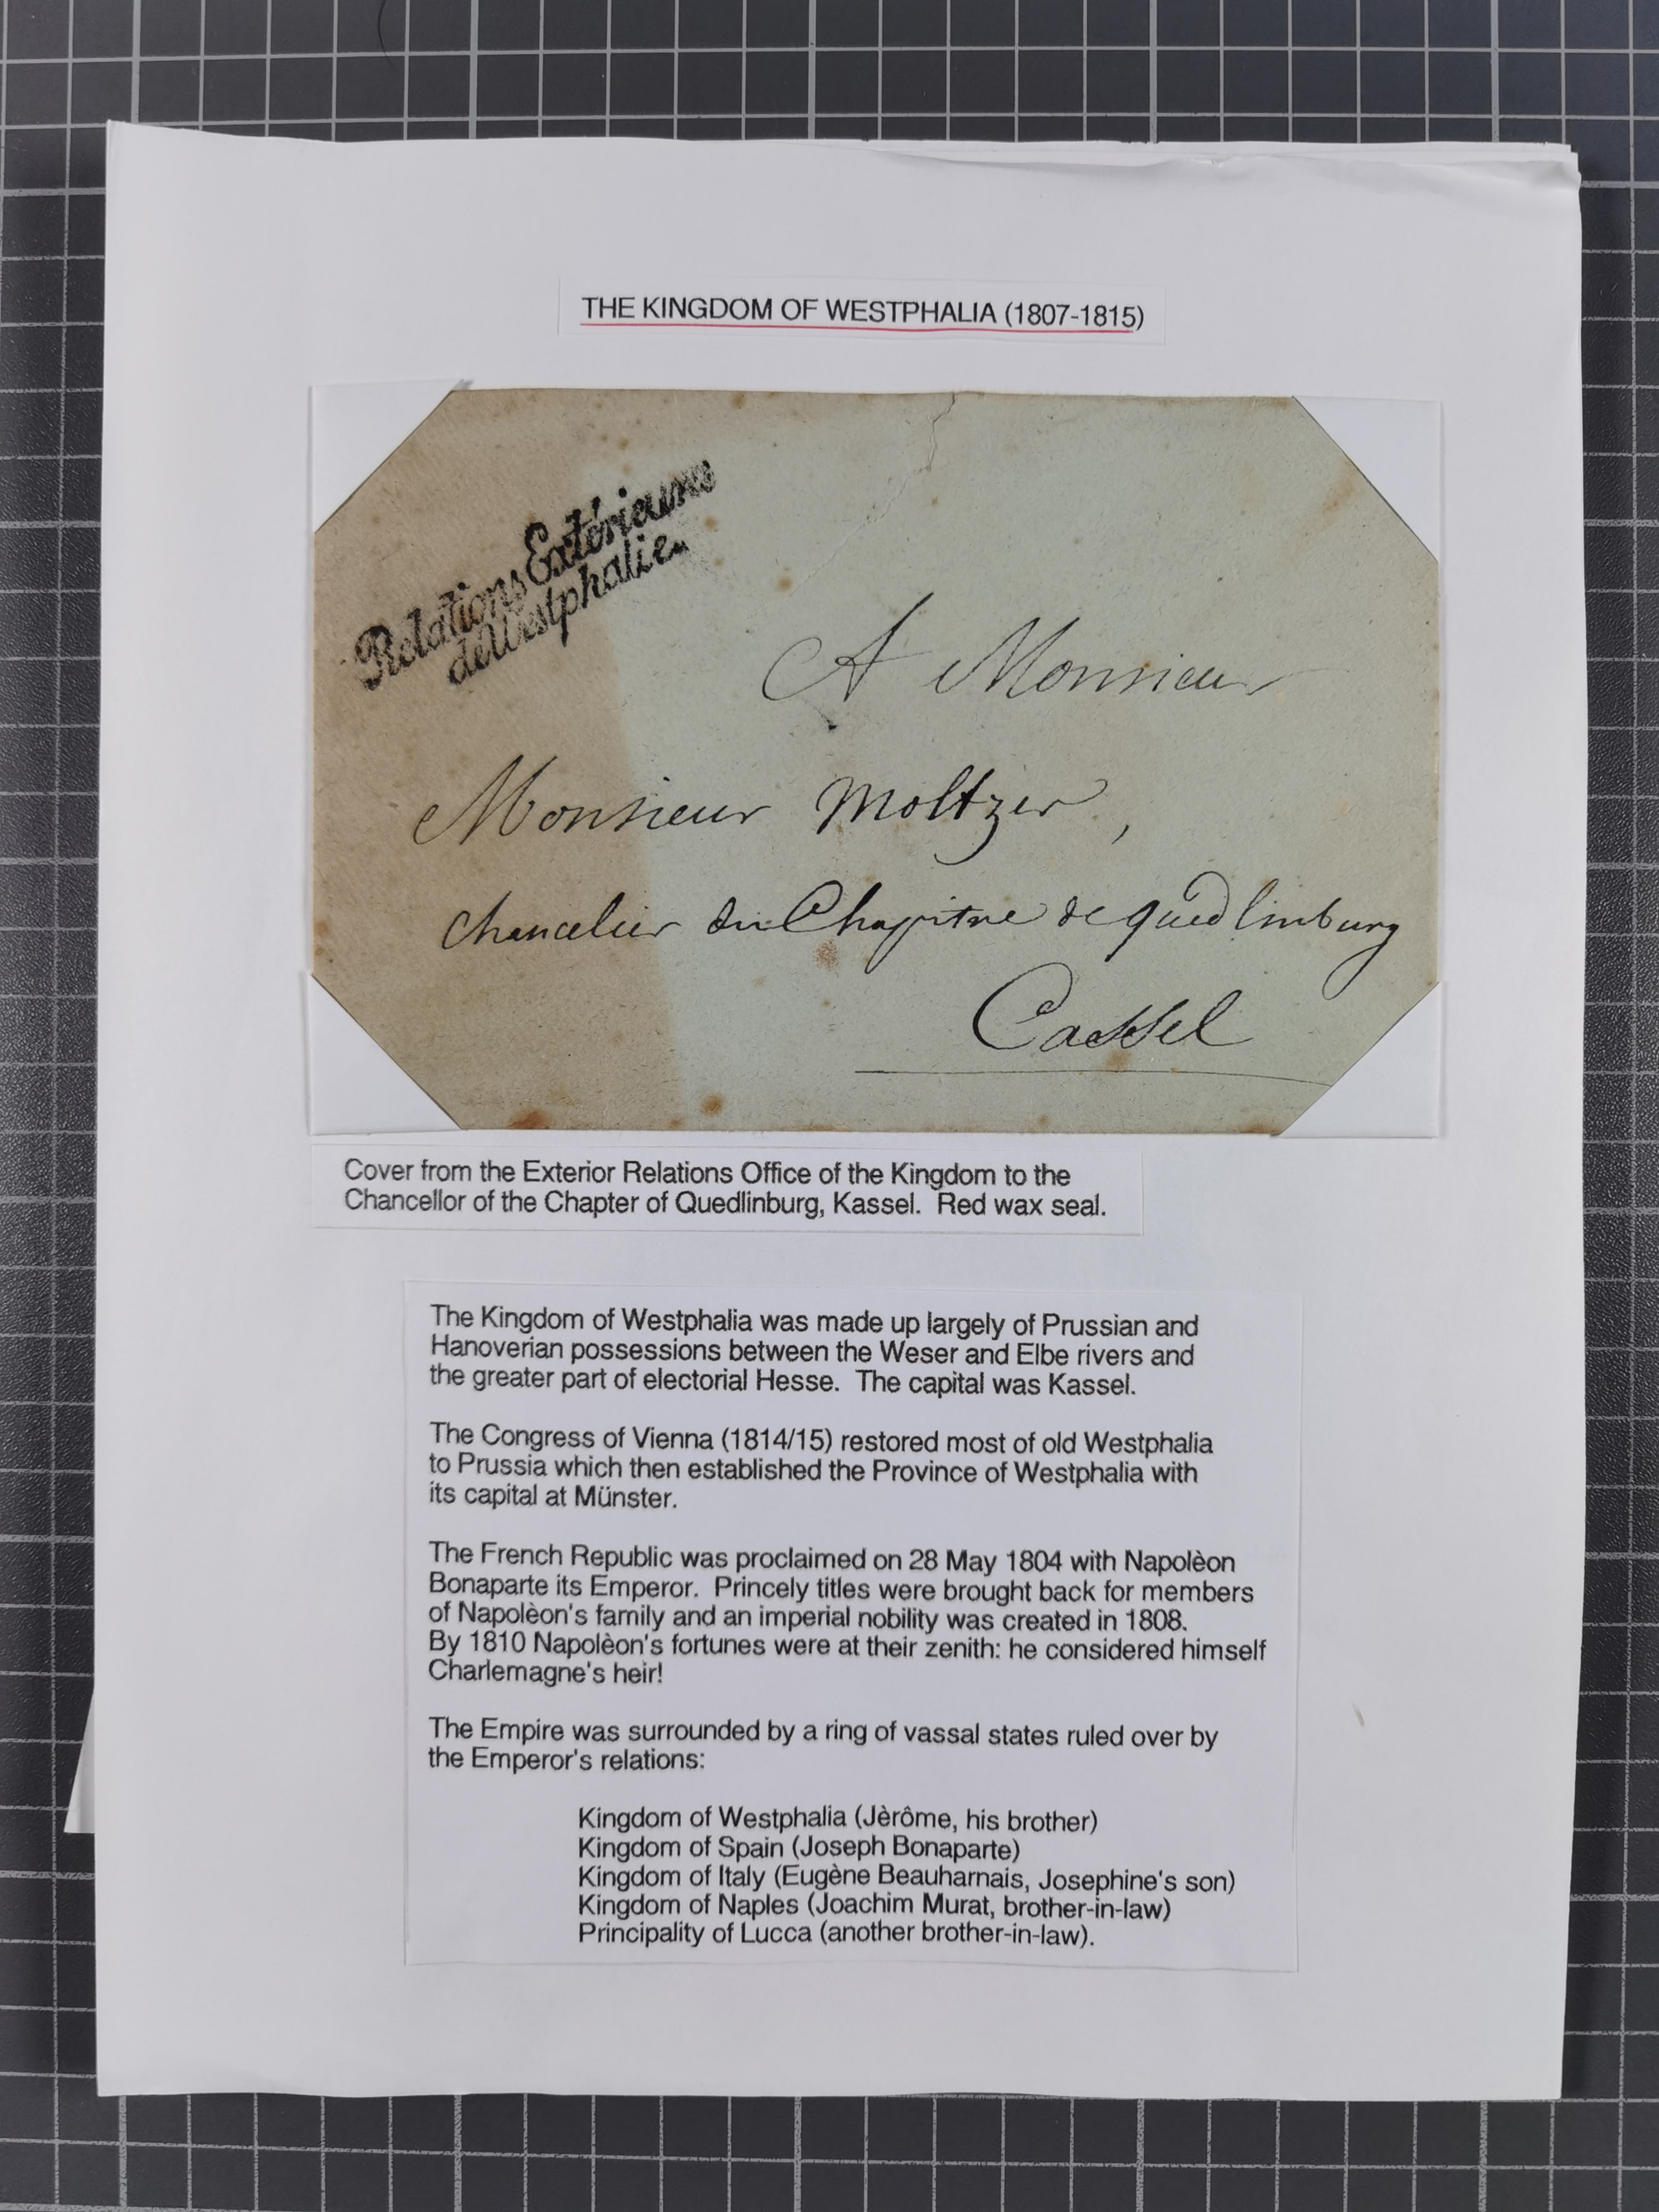 THE KINGDOM OF WESTPHALIA (1807-1815)
Relations Extérieures
de Westphalie.
A Monsieur
Monsieur Moltzer,
Chancelier du Chapitre de quedlinburg
Cassel
Cover from the Exterior Relations Office of the Kingdom to the
Chancellor of the Chapter of Quedlinburg, Kassel. Red wax seal.
The Kingdom of Westphalia was made up largely of Prussian and
Hanoverian possessions between the Weser and Elbe rivers and
the greater part of electorial Hesse. The capital was Kassel.
The Congress of Vienna (1814/15) restored most of old Westphalia
to Prussia which then established the Province of Westphalia with
its capital at Münster.
The French Republic was proclaimed on 28 May 1804 with Napolèon
Bonaparte its Emperor. Princely titles were brought back for members
of Napolèon's family and an imperial nobility was created in 1808.
By 1810 Napolèon's fortunes were at their zenith: he considered himself
Charlemagne's heir!
The Empire was surrounded by a ring of vassal states ruled over by
the Emperor's relations:
Kingdom of Westphalia (Jèrôme, his brother)
Kingdom of Spain (Joseph Bonaparte)
Kingdom of Italy (Eugène Beauharnais, Josephine's son)
Kingdom of Naples (Joachim Murat, brother-in-law)
Principality of Lucca (another brother-in-law).